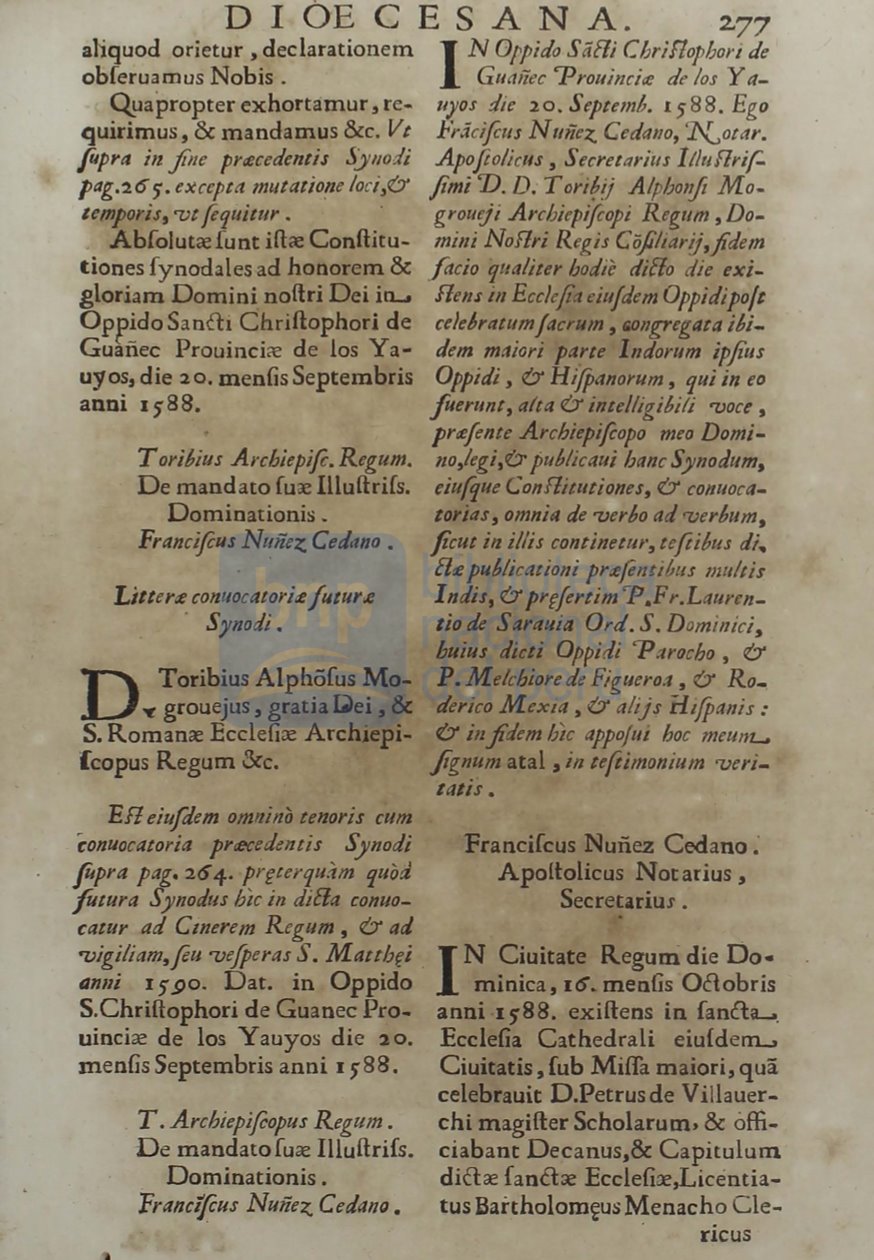 DIOECESANA. 277
aliquod orietur, declarationem
obſeruamus Nobis.
Quapropter exhortamur, re-
quirimus, & mandamus &c. Vt
ſupra in fine præcedentis Synodi
pag. 265. excepta mutatione loci, &
temporis, vt ſequitur.
Abſolutæ ſunt iſtæ Conſtitu-
tiones ſynodales ad honorem &
gloriam Domini noſtri Dei in
Oppido Sancti Chriſtophori de
Guañec Prouinciæ de los Ya-
uyos, die 20. menſis Septembris
anni 1588.
Toribius Archiepiſc. Regum.
De mandato ſuæ Illuſtriſs.
Dominationis.
Franciſcus Nuñez Cedano.
Litteræ conuocatoriæ futuræ
Synodi.
D. Toribius Alphõſus Mo-
grouejus, gratia Dei, &
S. Romanæ Eccleſiæ Archiepi-
ſcopus Regum &c.
Eſt eiuſdem omninò tenoris cum
conuocatoria præcedentis Synodi
ſupra pag. 264. pręterquàm quòd
futura Synodus hìc in dicta conuo-
catur ad Cinerem Regum, & ad
vigiliam, ſeu veſperas S. Matthęi
anni 1590. Dat. in Oppido
S. Chriſtophori de Guanec Pro-
uinciæ de los Yauyos die 20.
menſis Septembris anni 1588.
T. Archiepiſcopus Regum.
De mandato ſuæ Illuſtriſs.
Dominationis.
Franciſcus Nuñez Cedano.
IN Oppido Sãcti Chriſtophori de
Guañec Prouinciæ de los Ya-
uyos die 20. Septemb. 1588. Ego
Frãciſcus Nuñez Cedano, Notar.
Apoſtolicus, Secretarius Illuſtriſ-
ſimi D. D. Toribij Alphonſi Mo-
groueji Archiepiſcopi Regum, Do-
mini Noſtri Regis Cõſiliarij, fidem
facio qualiter hodiè dicto die exi-
ſtens in Eccleſia eiuſdem Oppidi poſt
celebratum ſacrum, congregata ibi-
dem maiori parte Indorum ipſius
Oppidi, & Hiſpanorum, qui in eo
fuerunt, alta & intelligibili voce,
præſente Archiepiſcopo meo Domi-
no, legi, & publicaui hanc Synodum,
eiuſque Conſtitutiones, & conuoca-
torias, omnia de verbo ad verbum,
ſicut in illis continetur, teſtibus di-
ctæ publicationi præſentibus multis
Indis, & pręſertim P. Fr. Lauren-
tio de Sarauia Ord. S. Dominici,
huius dicti Oppidi Parocho, &
P. Melchiore de Figueroa, & Ro-
derico Mexia, & alijs Hiſpanis:
& in fidem hìc appoſui hoc meum
ſignum atal, in teſtimonium veri-
tatis.
Franciſcus Nuñez Cedano.
Apoſtolicus Notarius,
Secretarius.
IN Ciuitate Regum die Do-
minica, 16. menſis Octobris
anni 1588. exiſtens in ſancta
Eccleſia Cathedrali eiuſdem
Ciuitatis, ſub Miſſa maiori, quã
celebrauit D. Petrus de Villauer-
chi magiſter Scholarum, & offi-
ciabant Decanus, & Capitulum
dictæ ſanctæ Eccleſiæ, Licentia-
tus Bartholomęus Menacho Cle-
ricus